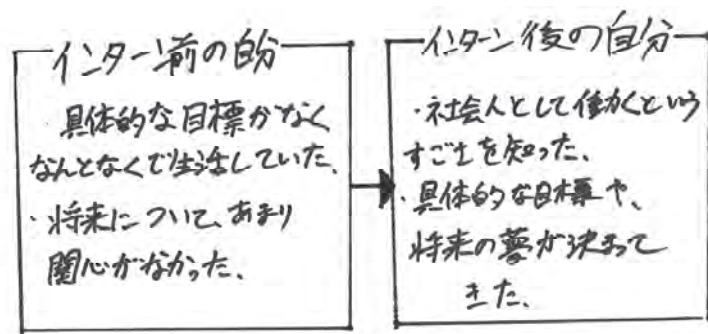 インターン前の自分
具体的な目標がなく
なんとなくで生活していた。
・将来について、あまり
関心がなかった。
インターン後の自分
・社会人として働くという
すごさを知った。
・具体的な目標や、
将来の夢が決まって
きた。